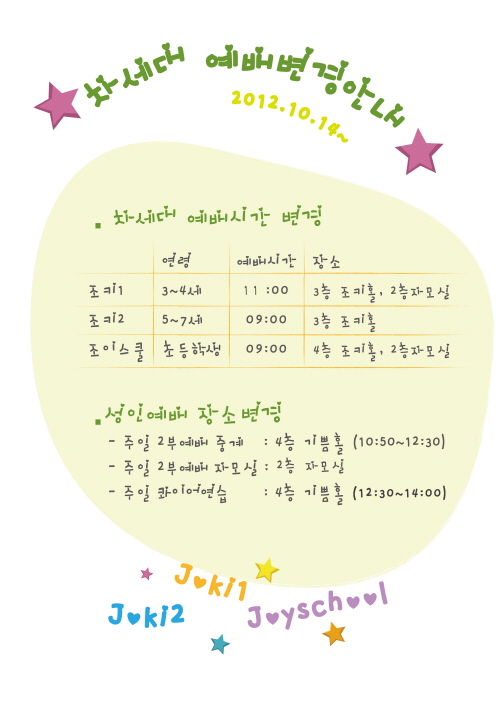 차세대 예배변경안내
2012.10.14~
▪ 차세대 예배시간 변경
연령 예배시간 장소
조키1 3~4세 11 :00 3층 조키홀, 2층자모실
조키2 5~7세 09:00 3층 조키홀
조이스쿨 초등학생 09:00 4층 조키홀, 2층자모실
▪성인예배 장소변경
- 주일 2부예배 중계 : 4층 기쁨홀 (10:50~12:30)
- 주일 2부예배 자모실 : 2층 자모실
- 주일 콰이어연습 : 4층 기쁨홀 (12:30~14:00)
J♥ki1
J♥ki2
J♥ysch♥♥l